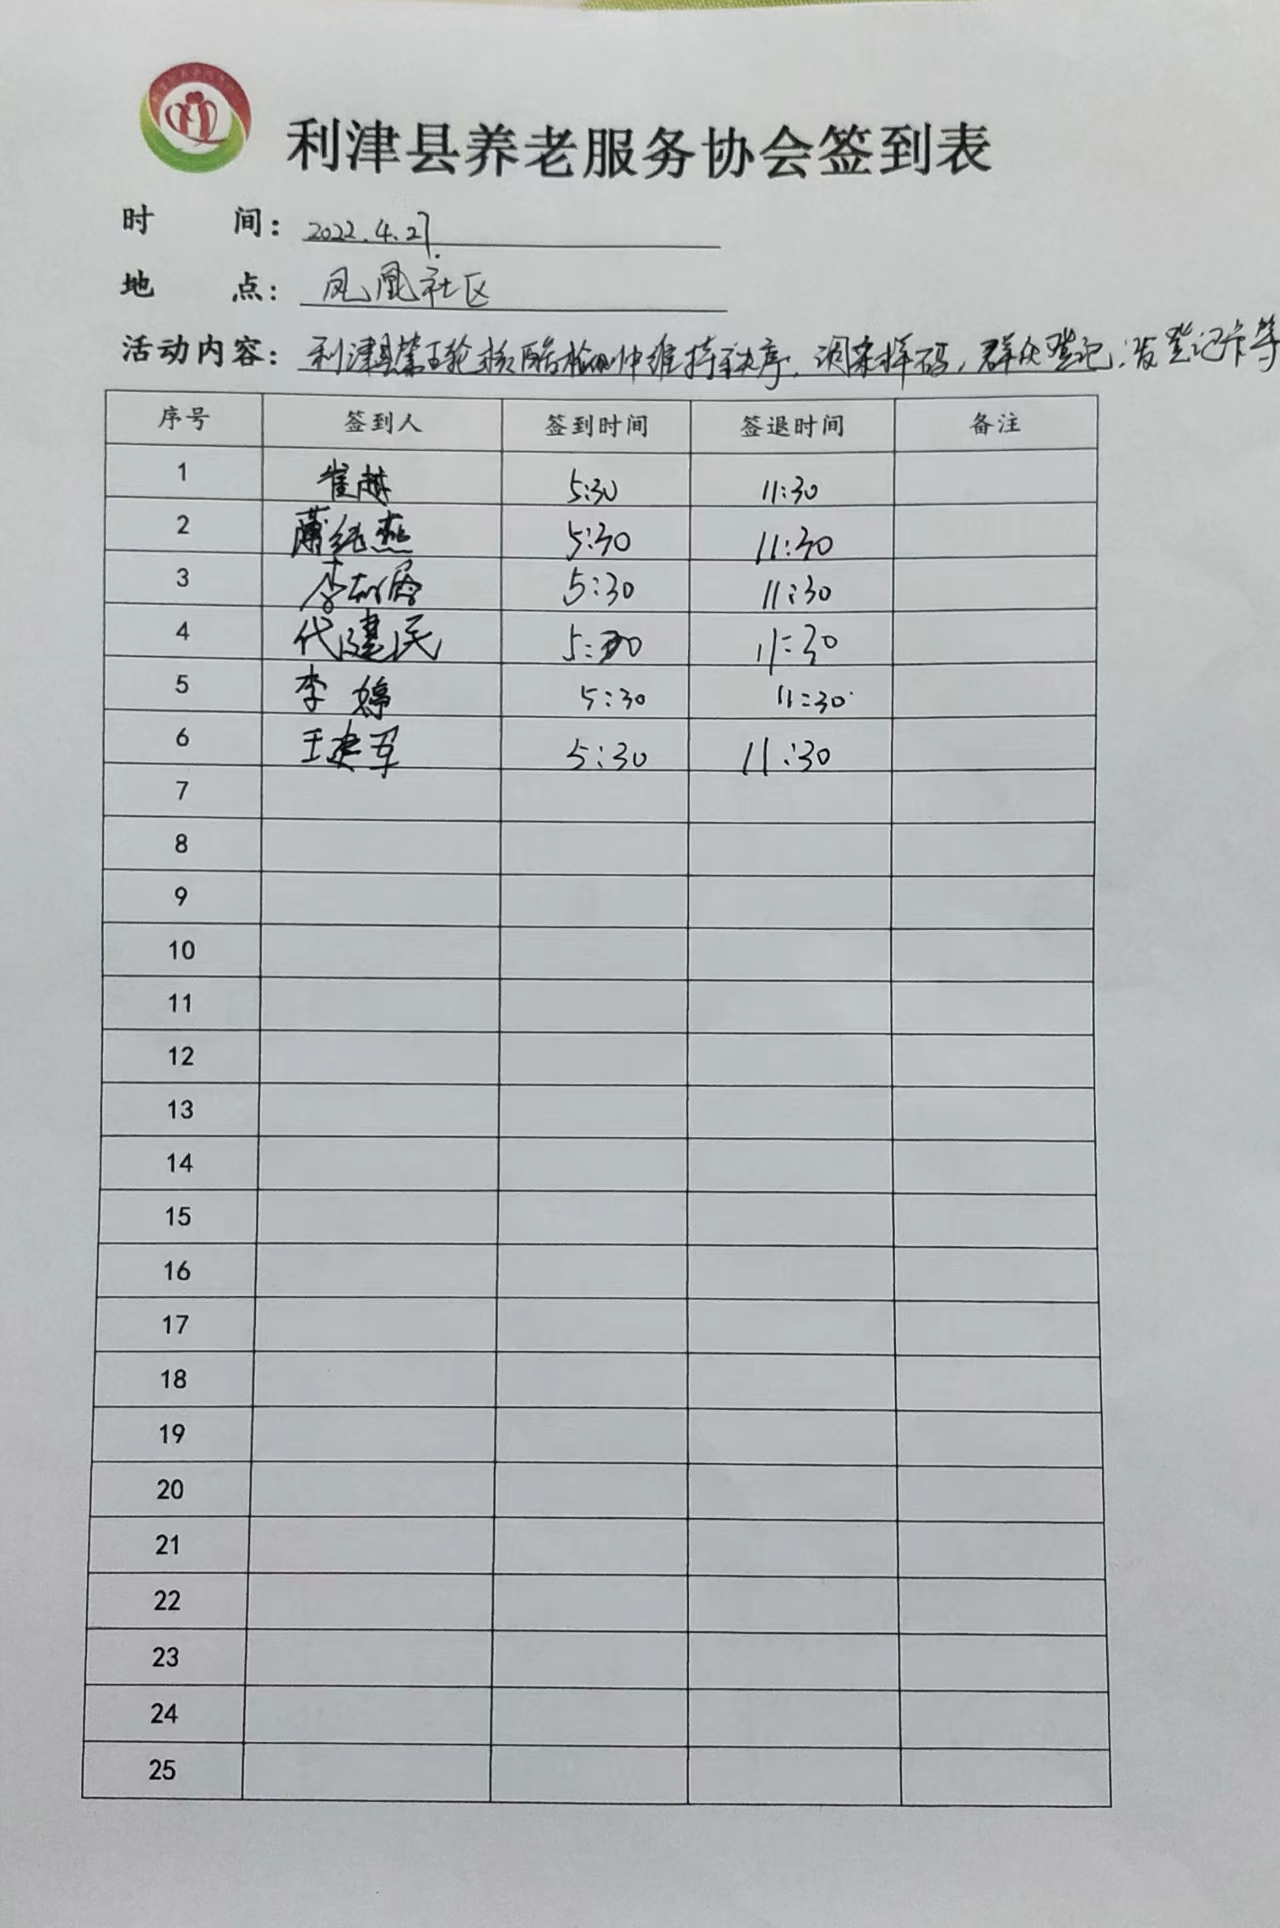 利津县养老服务协会签到表
时 间: 2022.4.27.
地 点: 凤凰社区
活动内容: 利津县第五轮核酸检测中维持秩序,调采样码,群众登记,发登记卡等
序号 签到人 签到时间 签退时间 备注
1 崔越 5:30 11:30
2 5:30 11:30
3 李 5:30 11:30
4 代建民 5:30 11:30
5 李婷 5:30 11:30
6 王建军 5:30 11:30
7
8
9
10
11
12
13
14
15
16
17
18
19
20
21
22
23
24
25